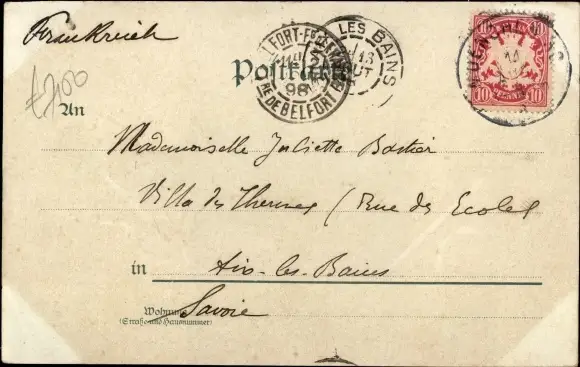 Frankreich
LES BAINS
BELFORT
98
RE DE BELFORT
Postkarte
10 10
£7,00
An
Mademoiselle Juliette Bastier
Villa des Thermes (Rue des Ecoles
in Aix-les-Bains
Savoie
Wohnung
(Straße und Hausnummer)